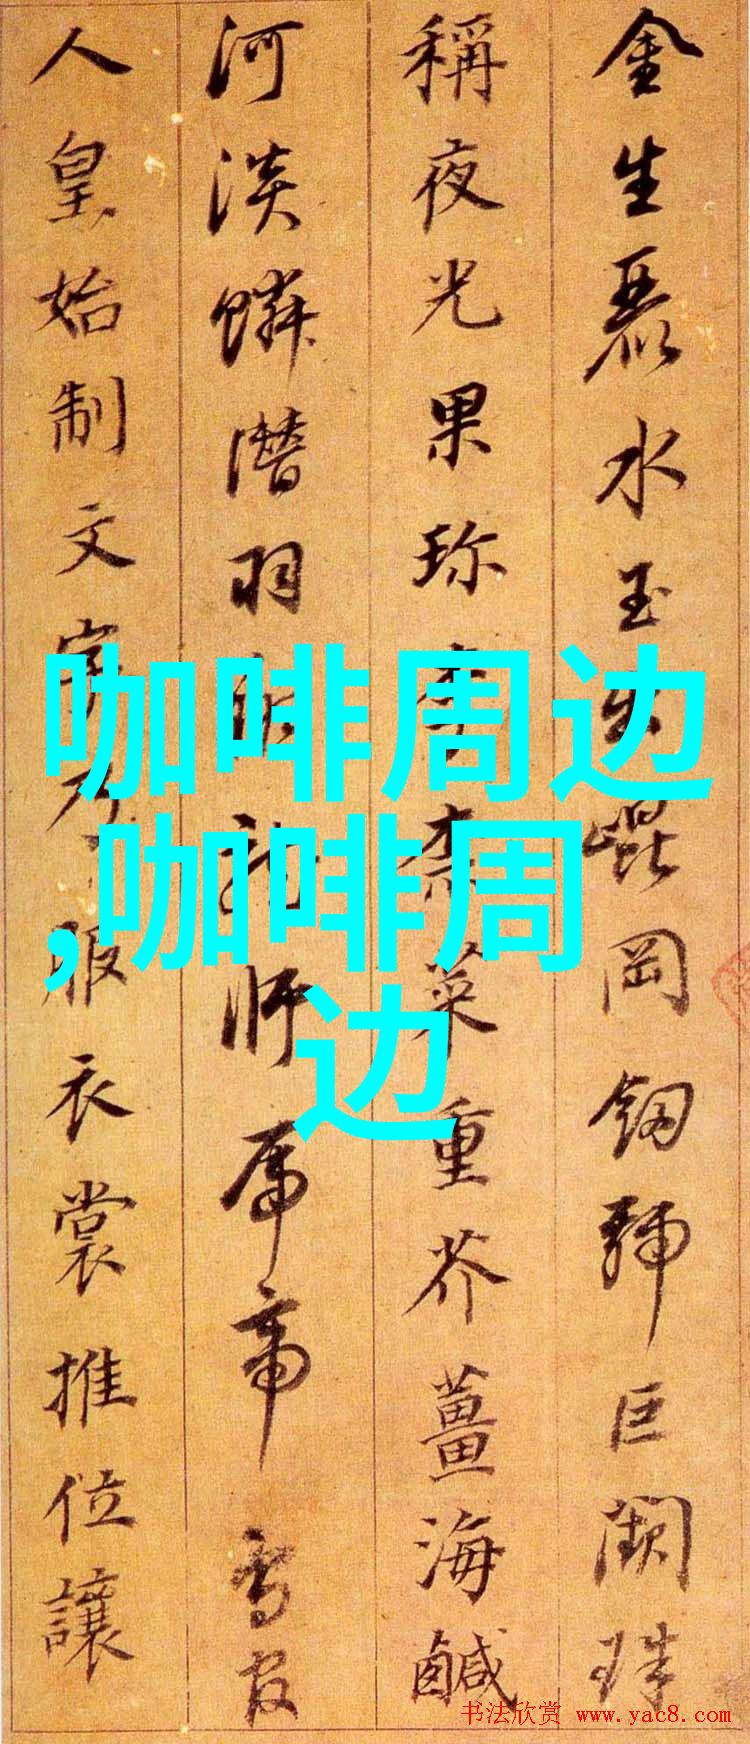 金生麗水玉出崐岡釰號巨闕珠
稱夜光果珎李柰菜重芥薑海鹹
河淡鱗潛羽翔龍師火帝鳥官
人皇始制文字乃服衣裳推位讓
咖啡周边
,咖啡周
边
书法欣赏 www.yac8.com